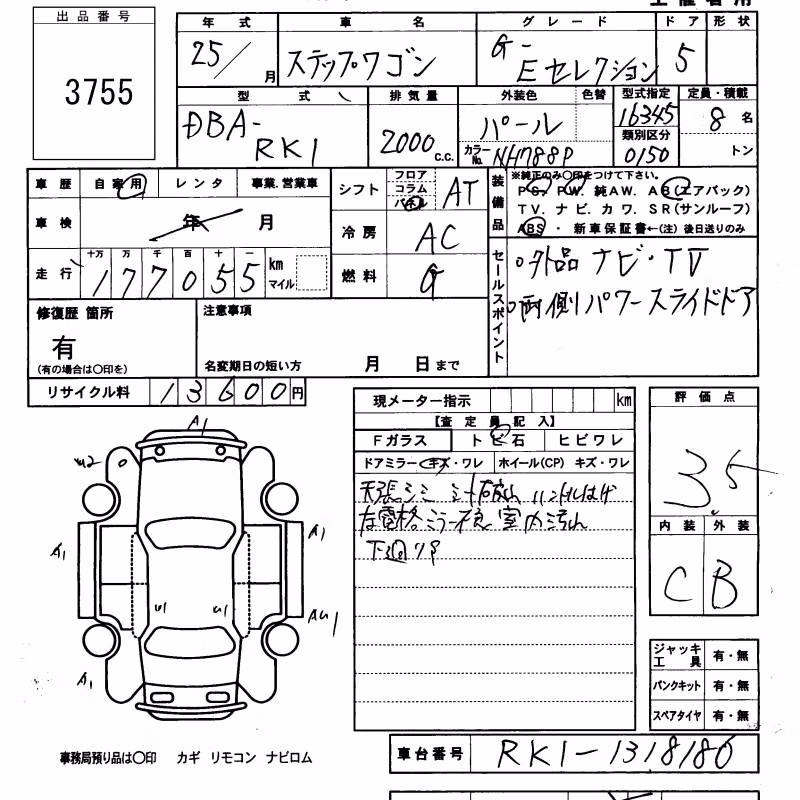 出品番号
3755
年式 車名 グレード ドア 形状
25/ 月 ステップワゴン G- Eセレクション 5
型式 排気量 外装色 色替 型式指定 定員・積載
DBA-RK1 2000 c.c. パール 16345 8 名
カラーNo. NH788P 類別区分 0150 トン
車歴 自家用 レンタ 事業.営業車
シフト フロア コラム パネル AT
装備品 ※純正のみ〇印をつけて下さい。
PS. PW. 純AW. AB(エアバック)
TV. ナビ. カワ. SR(サンルーフ)
ABS ・ 新車保証書←(注) 後日送りのみ
車検 年 月
冷房 AC
走行 十万 万 千 百 十 一
177055 km マイル
燃料 G
セールスポイント
○外品 ナビ・TV
○両側パワースライドドア
修復歴 箇所
有
(有の場合は〇印を)
注意事項
名変期日の短い方 月 日まで
リサイクル料 13600円
現メーター指示 km
【査定員記入】
Fガラス トビ石 ヒビワレ
ドアミラー キズ・ワレ ホイール(CP) キズ・ワレ
天張シミ シート破れ ハンドルはげ
左電格ミラー不良 室内汚れ
下廻サビ
評価点
3.5
内装 外装
C B
A1
U2
A1
A1
U1
U1
AU1
A1
ジャッキ工具 有・無
パンクキット 有・無
スペアタイヤ 有・無
事務局預り品は〇印 カギ リモコン ナビロム
車台番号 RK1-1318186